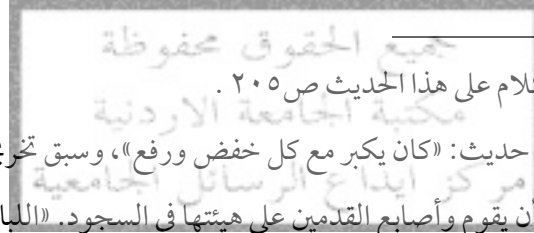 جميع الحقوق محفوظة
كلام على هذا الحديث ص٢٠٥ .
مكتبة الجامعة الاردنية
حديث: «كان يكبر مع كل خفض ورفع»، وسبق
مركز ايداع الرسائل الجامعية
أن يقوم وأصابع القدمين على هيئتها في السجود.